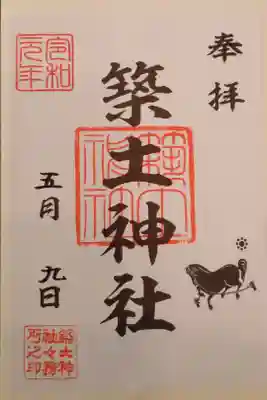 奉拝
築土神社
令和元年
五月九日
築土神社
築土神社々務所之印